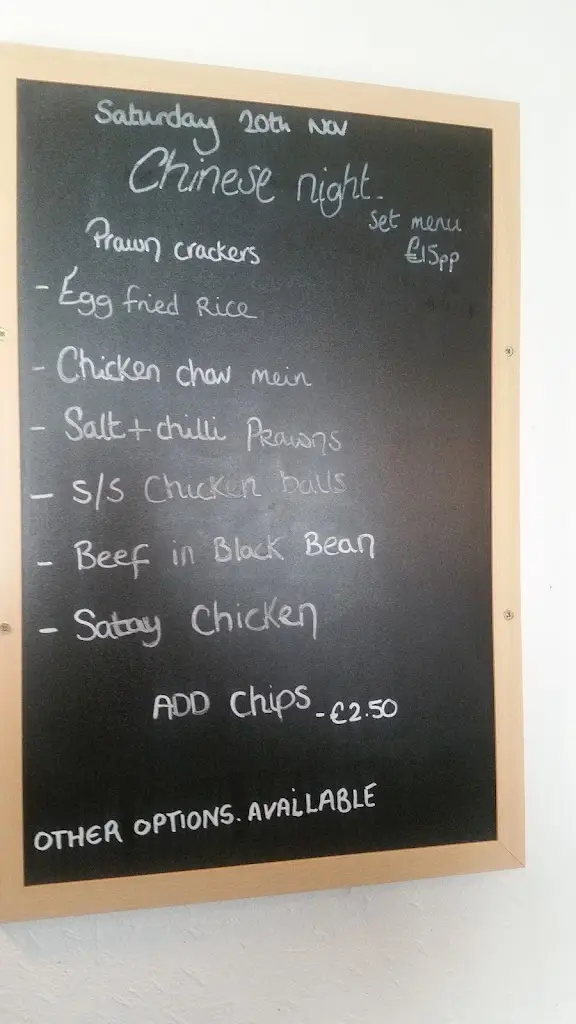 Saturday 20th Nov
Chinese night.
Set menu
£15pp
Prawn crackers
- Egg fried Rice
- Chicken chow mein
- Salt + chilli Prawns
- S/S Chicken balls
- Beef in Black Bean
- Satay Chicken
ADD Chips - £2.50
OTHER OPTIONS. AVAILABLE